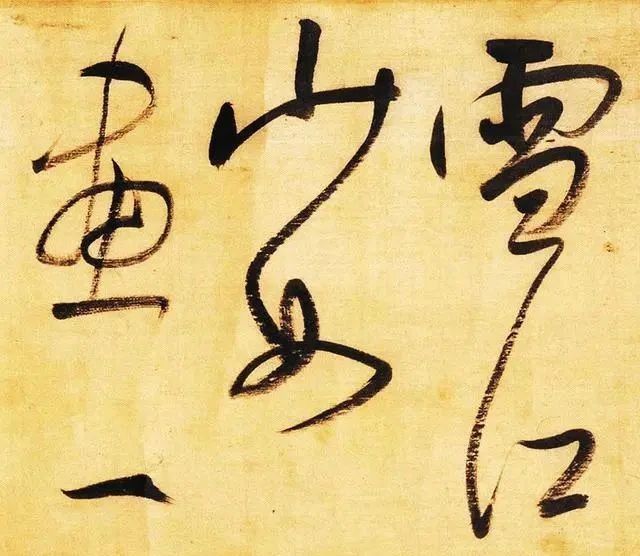 雪江
山如
畫一